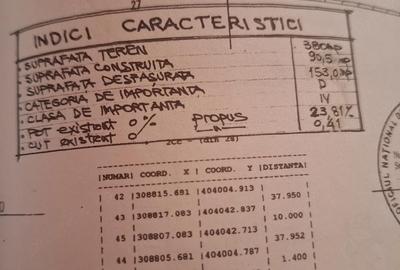 27
INDICI CARACTERISTICI
SUPRAFATA TEREN 380mp
SUPRAFATA CONSTRUITA 90,5 mp
SUPRAFATA DESFASURATA 153,0mp
CATEGORIA DE IMPORTANTA D
CLASA DE IMPORTANTA IV
POT existent 0% propus 23,81%
CUT existent 0 0,41
|NUMAR| COORD. X | COORD. Y |DISTANTA|
42 |308815.681 |404004.913 | 37.950
43 |308817.083 |404042.837 | 10.000
45 |308807.083 |404042.713 | 37.952
44 |308805.681 |404004.787 | 1.400
OFICIUL NATIONAL